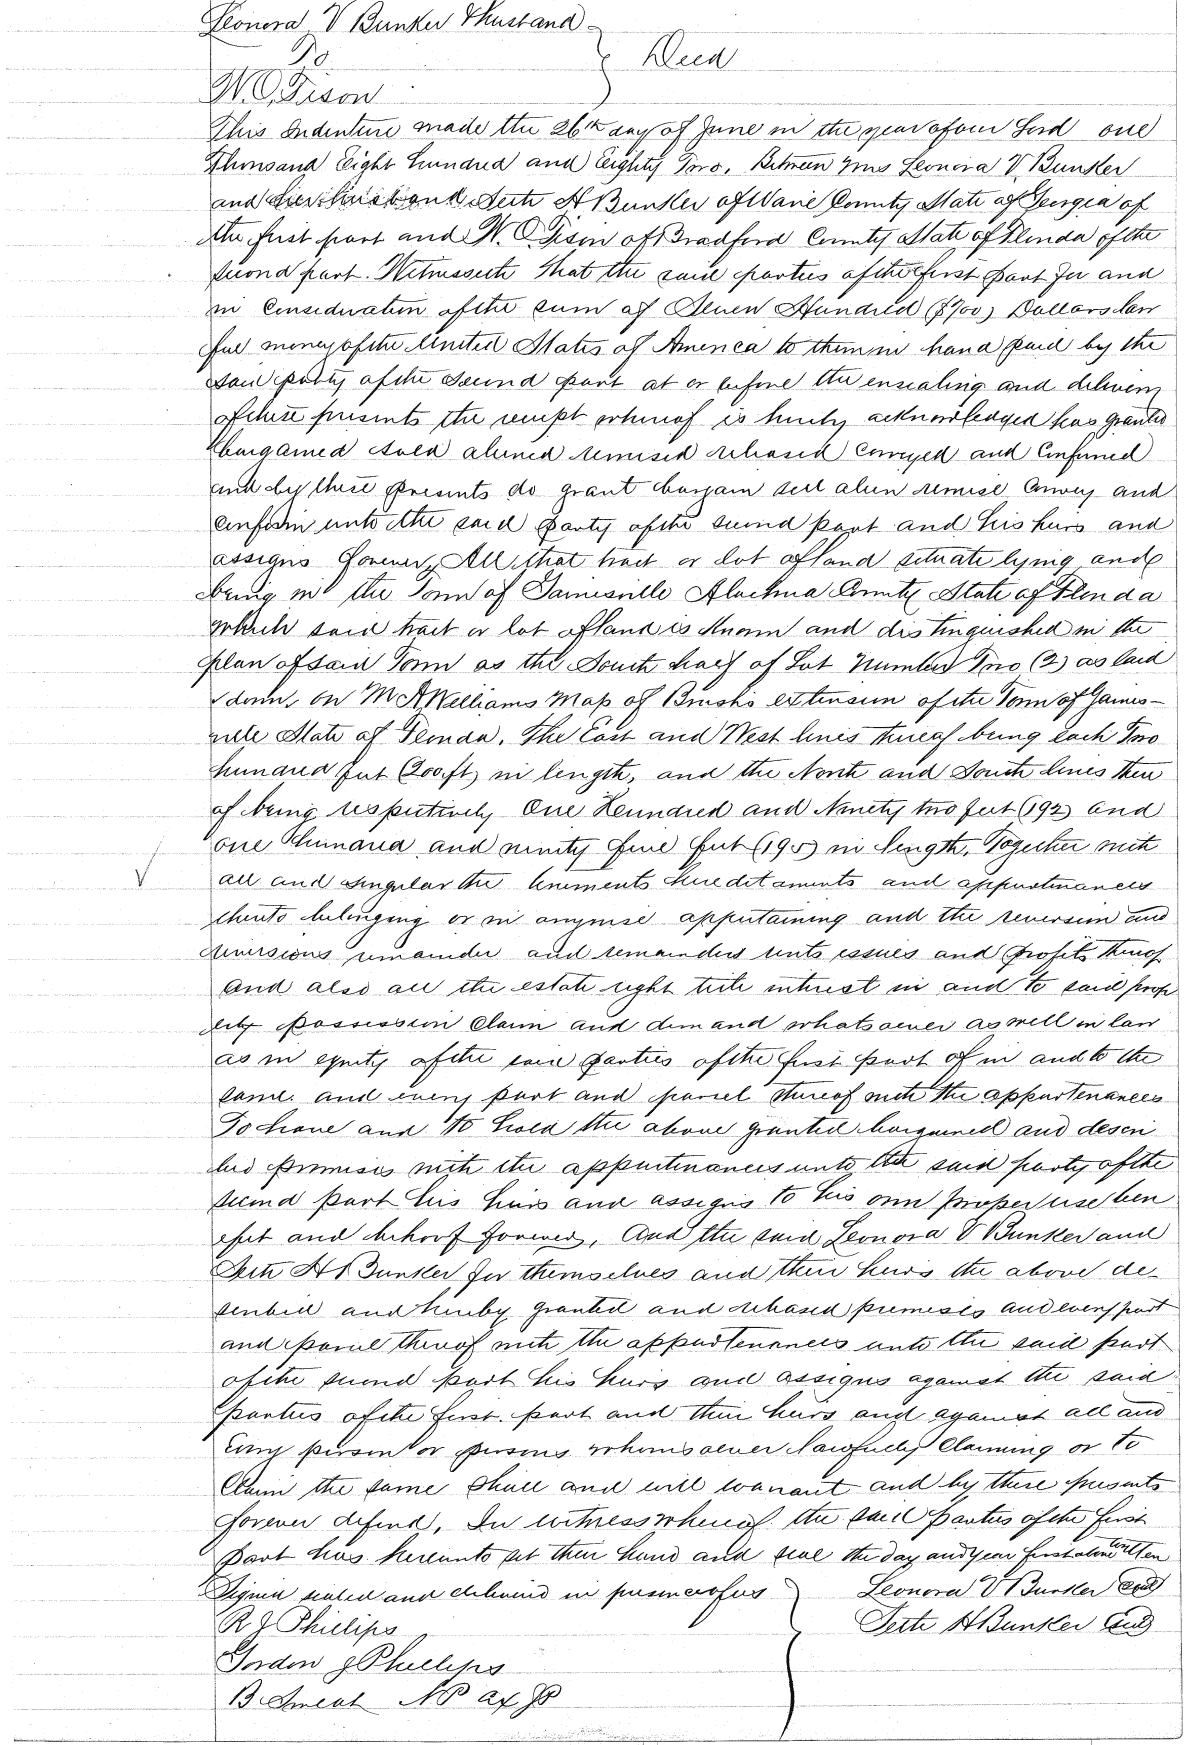 Leonora V Bunker & Husband
To } Deed
W. O. Tison
This Indenture made the 26th day of June in the year of our Lord one
Thousand Eight hundred and Eighty Two, Between Mrs Leonora V. Bunker
and her husband Seth H Bunker of Ware County State of Georgia of
the first part and W. O. Tison of Bradford County State of Florida of the
second part. Witnesseth that the said parties of the first part for and
in Consideration of the sum of Seven Hundred ($700) Dollars law
ful money of the United States of America to them in hand paid by the
said party of the second part at or before the ensealing and delivery
of these presents the receipt whereof is hereby acknowledged has granted
bargained sold aliened remised released conveyed and Confirmed
and by these presents do grant bargain sell alien remise Convey and
Confirm unto the said party of the second part and his heirs and
assigns forever, All that tract or lot of land situate lying and
being in the Town of Gainesville Alachua County State of Florida
which said tract or lot of land is known and distinguished in the
plan of said Town as the South half of Lot Number Two (2) as laid
down, on McWilliams Map of Brush's extension of the Town of Gaines-
ville State of Florida. The East and West lines thereof being each Two
hundred feet (200 ft) in length, and the North and South lines there
of being respectively One Hundred and Ninety two feet (192) and
one hundred and ninety five feet (195) in length, Together with
all and singular the tenements hereditaments and appurtenances
thereto belonging or in anywise appertaining and the reversion and
reversions remainder and remainders rents issues and profits thereof
and also all the estate right title interest in and to said prop
erty possession Claim and demand whatsoever as well in law
as in equity of the said parties of the first part of in and to the
same. and every part and parcel thereof with the appurtenances
To have and to hold the above granted bargained and descri
bed premises with the appurtenances unto the said party of the
second part his heirs and assigns to his own proper use ben
efit and behoof forever, And the said Leonora V Bunker and
Seth H Bunker for themselves and their heirs the above de-
scribed and hereby granted and released premises and every part
and parcel thereof with the appurtenances unto the said part
of the second part his heirs and assigns against the said
parties of the first. part and their heirs and against all and
every person or persons whomsoever lawfully Claiming or to
Claim the same shall and will warrant and by these presents
forever defend, In witness whereof the said parties of the first
part has hereunto set their hand and seal the day and year first above written
Signed sealed and delivered in presence of us } Leonora V Bunker Seal
R J Phillips Seth H Bunker Seal
Gordon J Phillips
B. Sweat NP